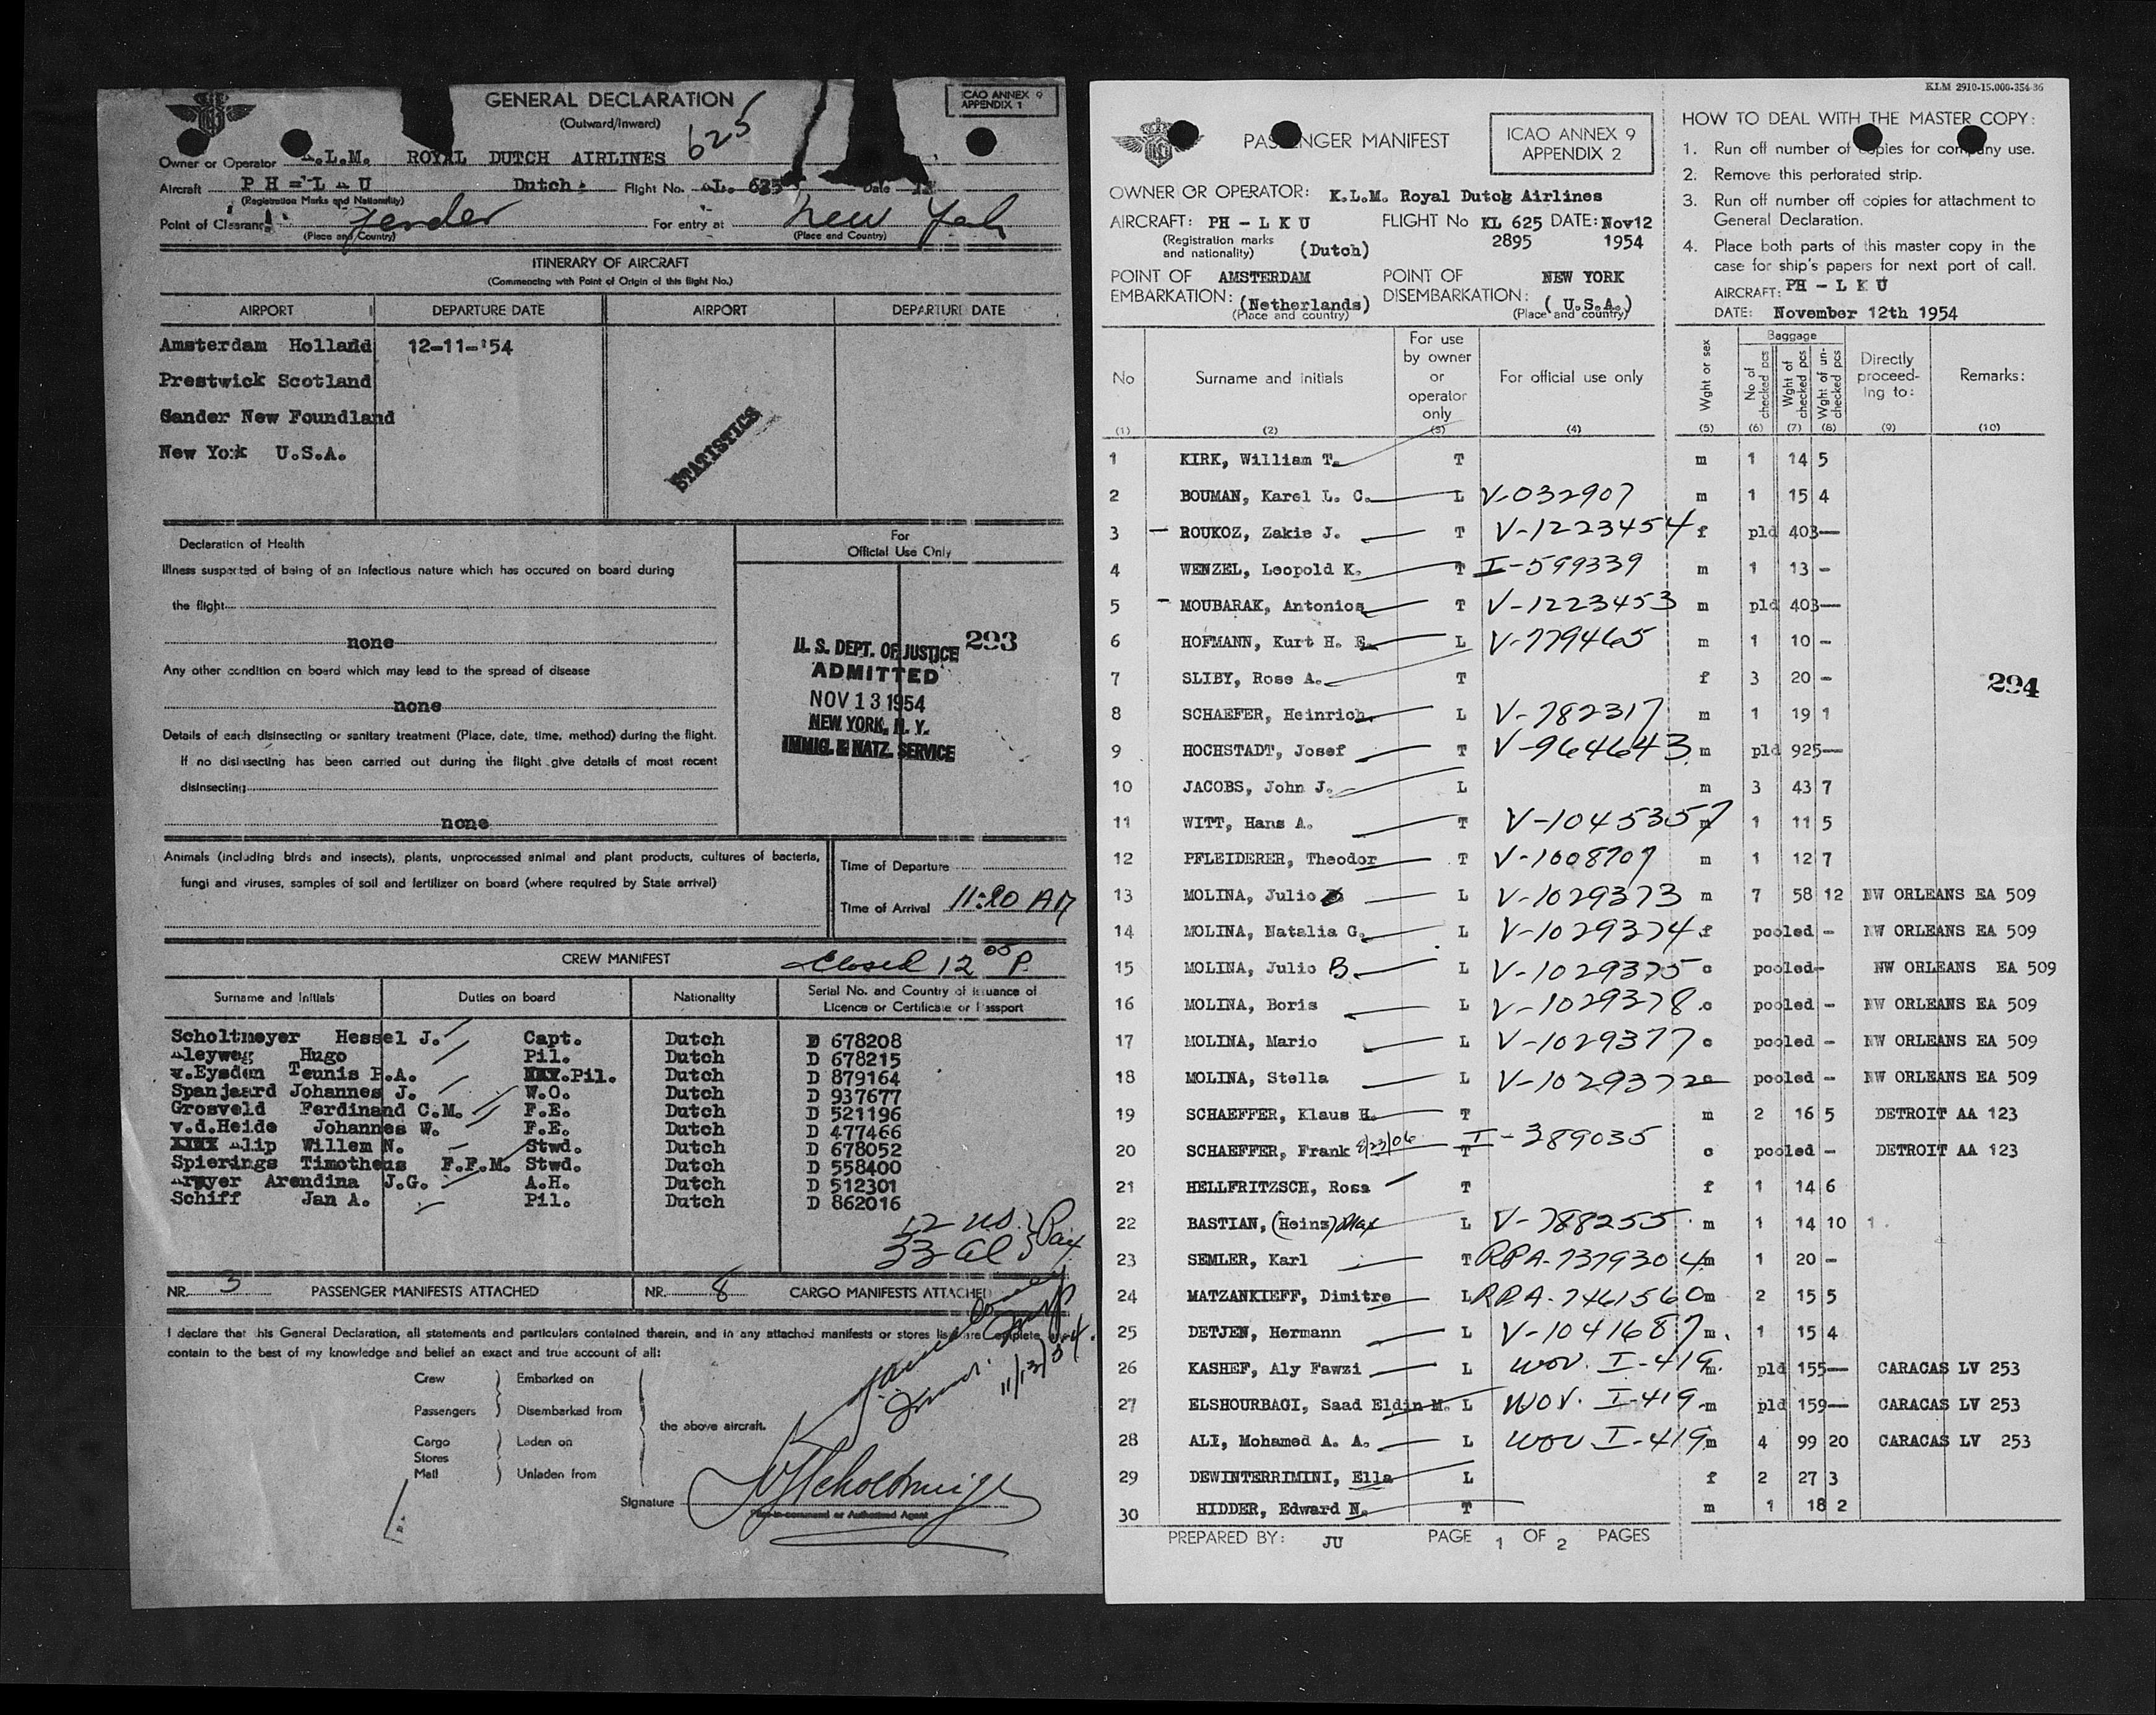 GENERAL DECLARATION
(Outward/Inward)
625
ICAO ANNEX 9
APPENDIX 1
Owner or Operator K.L.M. ROYAL DUTCH AIRLINES
Aircraft PH = L U Dutch. Flight No. L. 625 Date
(Registration Marks and Nationality)
Point of Clearance For entry at New York
(Place and Country) (Place and Country)
ITINERARY OF AIRCRAFT
(Commencing with Point of Origin of this flight No.)
AIRPORT DEPARTURE DATE AIRPORT DEPARTURE DATE
Amsterdam Holland 12-11-'54
Prestwick Scotland
Gander New Foundland
New York U.S.A.
STATISTICS
Declaration of Health
Illness suspected of being of an infectious nature which has occured on board during
the flight
none
Any other condition on board which may lead to the spread of disease
none
Details of each disinsecting or sanitary treatment (Place, date, time, method) during the flight.
If no disinsecting has been carried out during the flight give details of most recent
disinsecting
none
For
Official Use Only
293
U. S. DEPT. OF JUSTICE
ADMITTED
NOV 13 1954
NEW YORK, N. Y.
IMMIG. & NATZ. SERVICE
Animals (including birds and insects), plants, unprocessed animal and plant products, cultures of bacteria,
fungi and viruses, samples of soil and fertilizer on board (where required by State arrival)
Time of Departure
Time of Arrival 11:20 AM
CREW MANIFEST
Closed 12 05 P.
Surname and Initials Duties on board Nationality Serial No. and Country of issuance of
Licence or Certificate or Passport
Scholtmeyer Hessel J. Capt. Dutch D 678208
Aleyweg Hugo Pil. Dutch D 678215
v.Eysden Teunis P.A. Pil. Dutch D 879164
Spanjaard Johannes J. W.O. Dutch D 937677
Grosveld Ferdinand C.M. F.E. Dutch D 521196
v.d.Heide Johannes W. F.E. Dutch D 477466
Willem N. Stwd. Dutch D 678052
Spierings Timotheus F.F.M. Stwd. Dutch D 558400
Arendina J.G. A.H. Dutch D 512301
Schiff Jan A. Pil. Dutch D 862016
12 US
33 al
Pax
NR. 3 PASSENGER MANIFESTS ATTACHED NR. 8 CARGO MANIFESTS ATTACHED
I declare that this General Declaration, all statements and particulars contained therein, and in any attached manifests or stores lists are complete
contain to the best of my knowledge and belief an exact and true account of all:
11/13/54.
Crew Embarked on
Passengers Disembarked from
the above aircraft.
Cargo Laden on
Stores
Mail Unladen from
Signature
Pilot-in-command or Authorized Agent
KLM 2910-15.000-354-36
PASSENGER MANIFEST
ICAO ANNEX 9
APPENDIX 2
OWNER OR OPERATOR: K.L.M. Royal Dutog Airlines
AIRCRAFT: PH - L K U FLIGHT No KL 625 DATE: Nov12
(Registration marks
and nationality) (Dutch) 2895 1954
POINT OF AMSTERDAM POINT OF NEW YORK
EMBARKATION: (Netherlands) DISEMBARKATION: ( U.S.A.)
(Place and country) (Place and country)
HOW TO DEAL WITH THE MASTER COPY:
1. Run off number of copies for company use.
2. Remove this perforated strip.
3. Run off number off copies for attachment to
General Declaration.
4. Place both parts of this master copy in the
case for ship's papers for next port of call.
AIRCRAFT: PH - L K U
DATE: November 12th 1954
No Surname and initials For use by owner or operator only For official use only Wght or sex Baggage No of checked pcs Wght of checked pcs Wght of un-checked pcs Directly proceed-ing to: Remarks:
(1) (2) (3) (4) (5) (6) (7) (8) (9) (10)
1 KIRK, William T. T m 1 14 5
2 BOUMAN, Karel L. C. L V-032907 m 1 15 4
3 - ROUKOZ, Zakie J. T V-1223454 f pld 403—
4 WENZEL, Leopold K. T I-599339 m 1 13 -
5 - MOUBARAK, Antonios T V-1223453 m pld 403—
6 HOFMANN, Kurt H. E. L V-779465 m 1 10 -
7 SLIBY, Rose A. T f 3 20 -
294
8 SCHAEFER, Heinrich. L V-782317 m 1 19 1
9 HOCHSTADT, Josef T V-964643 m pld 925—
10 JACOBS, John J. L m 3 43 7
11 WITT, Hans A. T V-1045357 m 1 11 5
12 PFLEIDERER, Theodor T V-1008707 m 1 12 7
13 MOLINA, Julio L V-1029373 m 7 58 12 NW ORLEANS EA 509
14 MOLINA, Natalia G. L V-1029374 f pooled - NW ORLEANS EA 509
15 MOLINA, Julio B L V-1029375 c pooled- NW ORLEANS EA 509
16 MOLINA, Boris L V-1029378 c pooled - NW ORLEANS EA 509
17 MOLINA, Mario L V-1029377 c pooled - NW ORLEANS EA 509
18 MOLINA, Stella L V-1029372 c pooled - NW ORLEANS EA 509
19 SCHAEFFER, Klaus H. T m 2 16 5 DETROIT AA 123
20 SCHAEFFER, Frank 8/23/06 T I-389035 c pooled - DETROIT AA 123
21 HELLFRITZSCH, Rosa T f 1 14 6
22 BASTIAN, (Heinz) Max L V-788255 m 1 14 10
23 SEMLER, Karl T RPA-7379304 m 1 20 -
24 MATZANKIEFF, Dimitre L RPA-7461560 m 2 15 5
25 DETJEN, Hermann L V-1041687 m. 1 15 4
26 KASHEF, Aly Fawzi L WOV. I-419 m. pld 155— CARACAS LV 253
27 ELSHOURBAGI, Saad Eldin M. L WOV. I-419 m pld 159— CARACAS LV 253
28 ALI, Mohamed A. A. L WOV I-419 m 4 99 20 CARACAS LV 253
29 DEWINTERRIMINI, Ella L f 2 27 3
30 HIDDER, Edward N. T m 1 18 2
PREPARED BY: JU PAGE 1 OF 2 PAGES